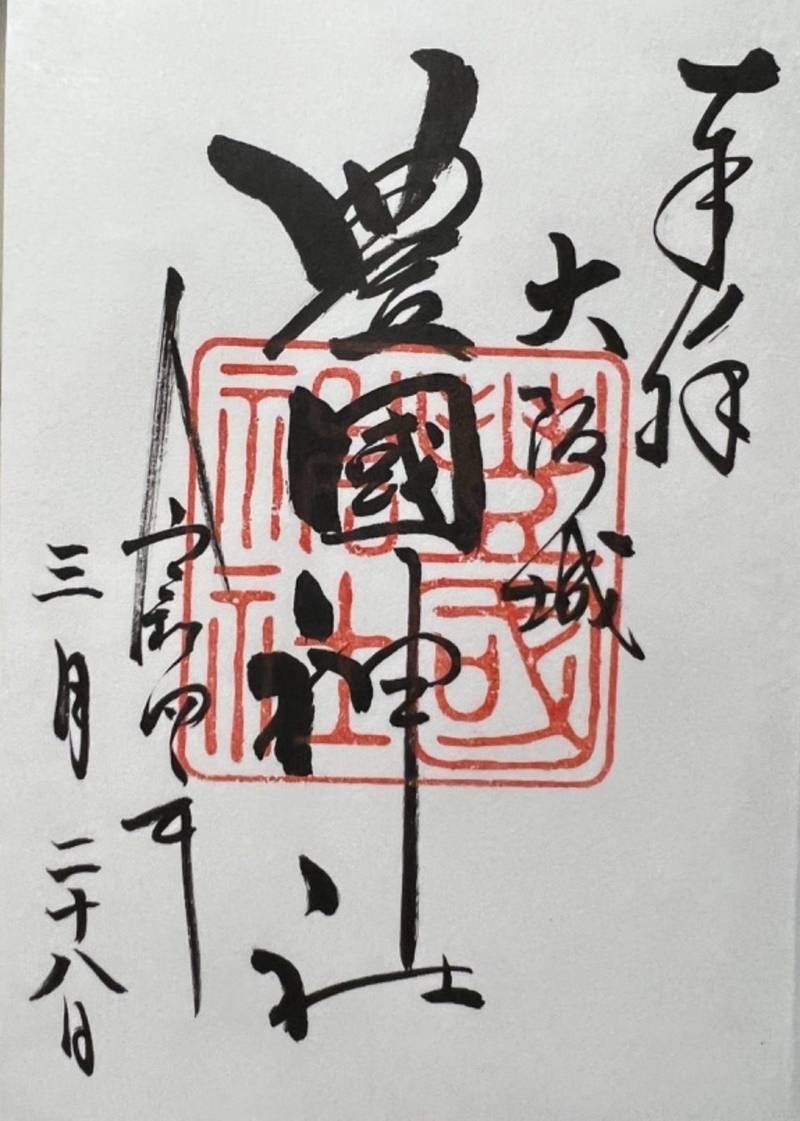 奉拝
大阪城
豊國神社
令和四年
三月二十八日
豊國
神社